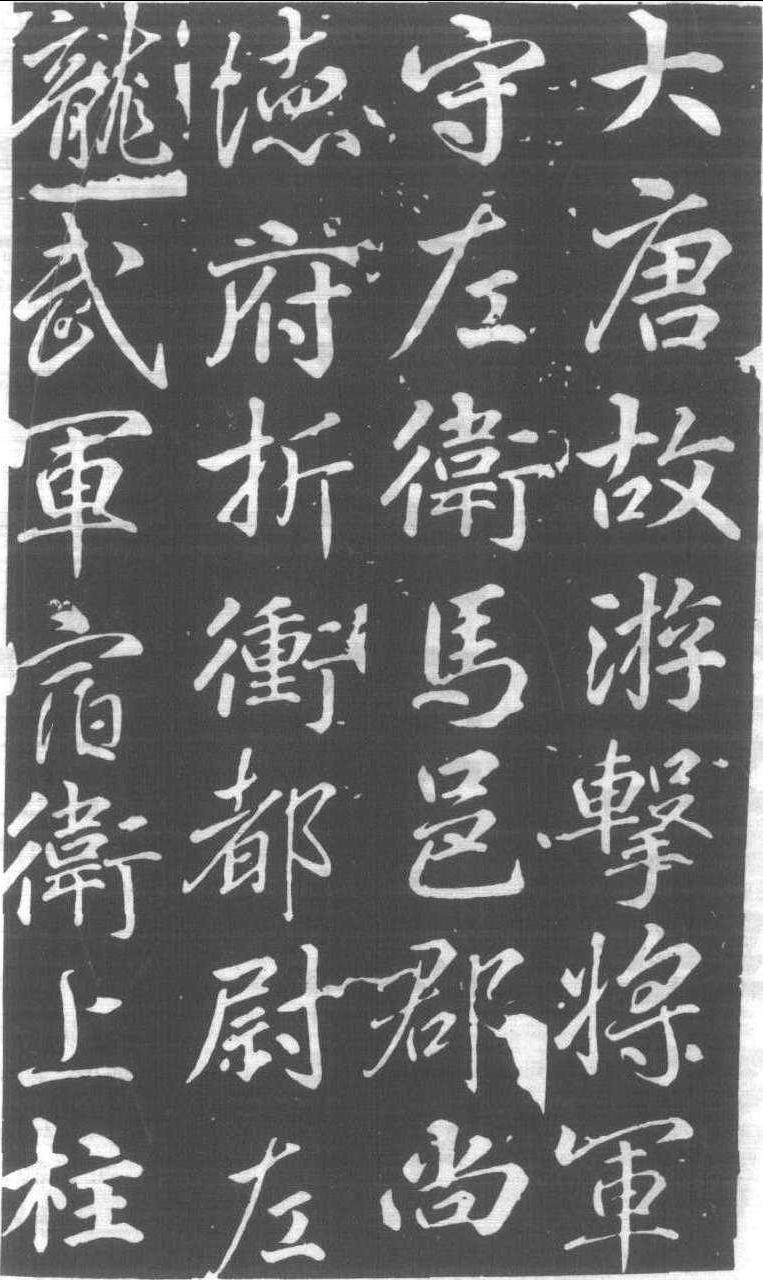 大唐故游擊將軍
守左衛馬邑郡尚
德府折衝都尉左
龍武軍宿衛上柱